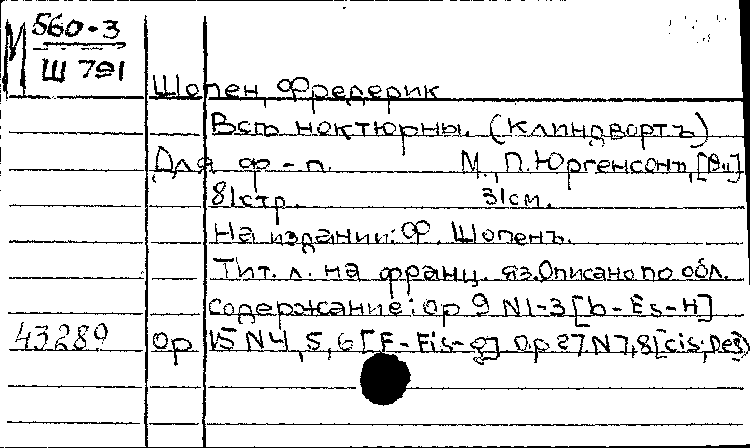 М 560-3
Ш 791
Шопен, Фредерик
Всѣ ноктюрны. (Клиндвортъ)
Для ф-п. М., П. Юргенсонъ,
81стр. 31см.
На издании: Ф. Шопенъ.
Тит. л. на франц. яз. Описано по обл.
содержание: ор 9 N1-3 [b-Es-H]
43289 Ор 15 N4, 5, 6 [F-Fis-g] Ор 27 N7,8 [cis; Des]